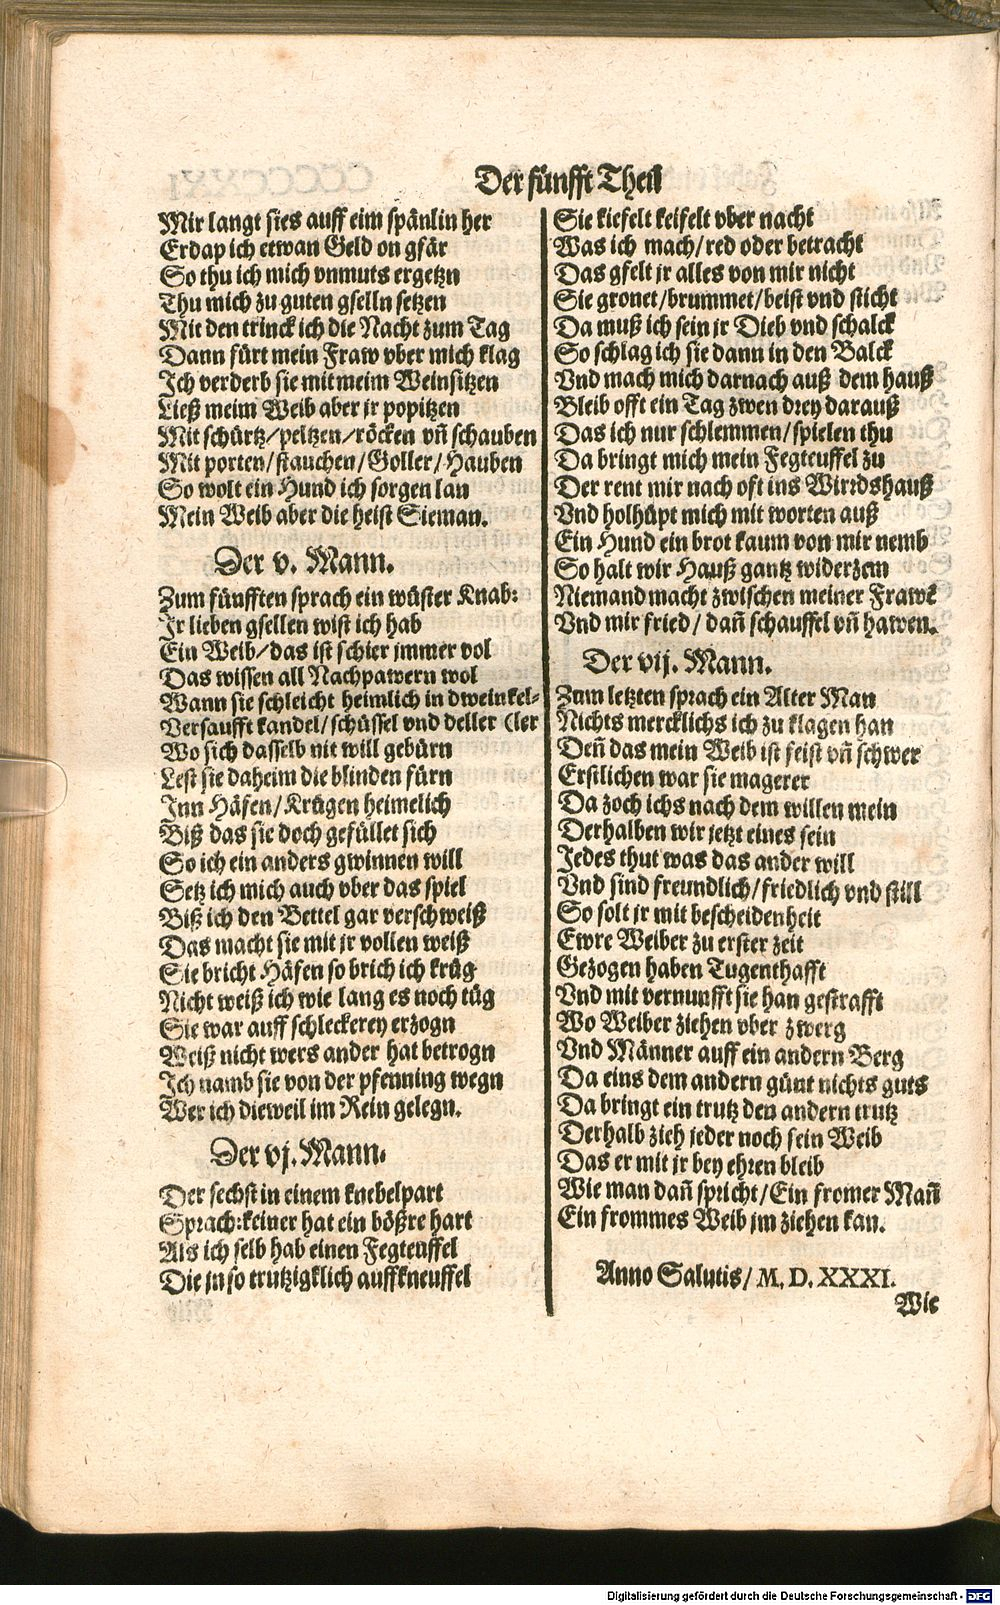 Der fünfft Theil
Mir langt sies auff eim spänlin her
Erdap ich etwan Geld on gfär
So thu ich mich vnmuts ergetzn
Thu mich zu guten gselln setzen
Mit den trinck ich die Nacht zum Tag
Dann fürt mein Fraw vber mich klag
Ich verderb sie mit meim Weinsitzen
Ließ meim Weib aber jr popitzen
Mit schürtz/peltzen/röcken vñ schauben
Mit porten/stauchen/Goller/Hauben
So wolt ein Hund ich sorgen lan
Mein Weib aber die heist Sieman.
Der v. Mann.
Zum fünfften sprach ein wüster Knab:
Ir lieben gsellen wist ich hab
Ein Weib/das ist schier jmmer vol
Das wissen all Nachpawern wol
Wann sie schleicht heimlich in dweinkel-
Versaufft kandel/schüssel vnd deller (ler
Wo sich dasselb nit will gebürn
Lest sie daheim die blinden fürn
Inn Häfen/Krügen heimelich
Biß das sie doch gefüllet sich
So ich ein anders gwinnen will
Setz ich mich auch vber das spiel
Biß ich den Bettel gar verschweiß
Das macht sie mit jr vollen weiß
Sie bricht Häfen so brich ich krüg
Nicht weiß ich wie lang es noch tüg
Sie war auff schleckerey erzogn
Weiß nicht wers ander hat betrogn
Ich namb sie von der pfenning wegn
Wer ich dieweil im Rein gelegn.
Der vj. Mann.
Der sechst in einem knebelpart
Sprach:keiner hat ein bößre hart
Als ich selb hab einen Fegteuffel
Die jn so trutzigklich auffkneuffel
Sie kiefelt keifelt vber nacht
Was ich mach/red oder betracht
Das gfelt jr alles von mir nicht
Sie gronet/brummet/beist vnd sticht
Da muß ich sein jr Dieb vnd schalck
So schlag ich sie dann in den Balck
Vnd mach mich darnach auß dem hauß
Bleib offt ein Tag zwen drey darauß
Das ich nur schlemmen/spielen thu
Da bringt mich mein Fegteuffel zu
Der rent mir nach oft ins Wirtdshauß
Vnd holhüpt mich mit worten auß
Ein Hund ein brot kaum von mir nemb
So halt wir Hauß gantz widerzem
Niemand macht zwischen meiner Frawẽ
Vnd mir fried/ dañ schauffel vñ hawen.
Der vij. Mann.
Zum letzten sprach ein Alter Man
Nichts mercklichs ich zu klagen han
Deñ das mein Weib ist feist vñ schwer
Erstlichen war sie magerer
Da zoch ichs nach dem willen mein
Derhalben wir jetzt eines sein
Jedes thut was das ander will
Vnd sind freundlich/friedlich vnd still
So solt jr mit bescheidenheit
Ewre Weiber zu erster zeit
Gezogen haben Tugenthafft
Vnd mit vernunfft sie han gestrafft
Wo Weiber ziehen vber zwerg
Vnd Männer auff ein andern Berg
Da eins dem andern günt nichts guts
Da bringt ein trutz den andern trutz
Derhalb zieh jeder noch sein Weib
Das er mit jr bey ehren bleib
Wie man dañ spricht/Ein fromer Mañ
Ein frommes Weib jm ziehen kan.
Anno Salutis/ M. D. XXXI.
Wie
Digitalisierung gefördert durch die Deutsche Forschungsgemeinschaft - DFG